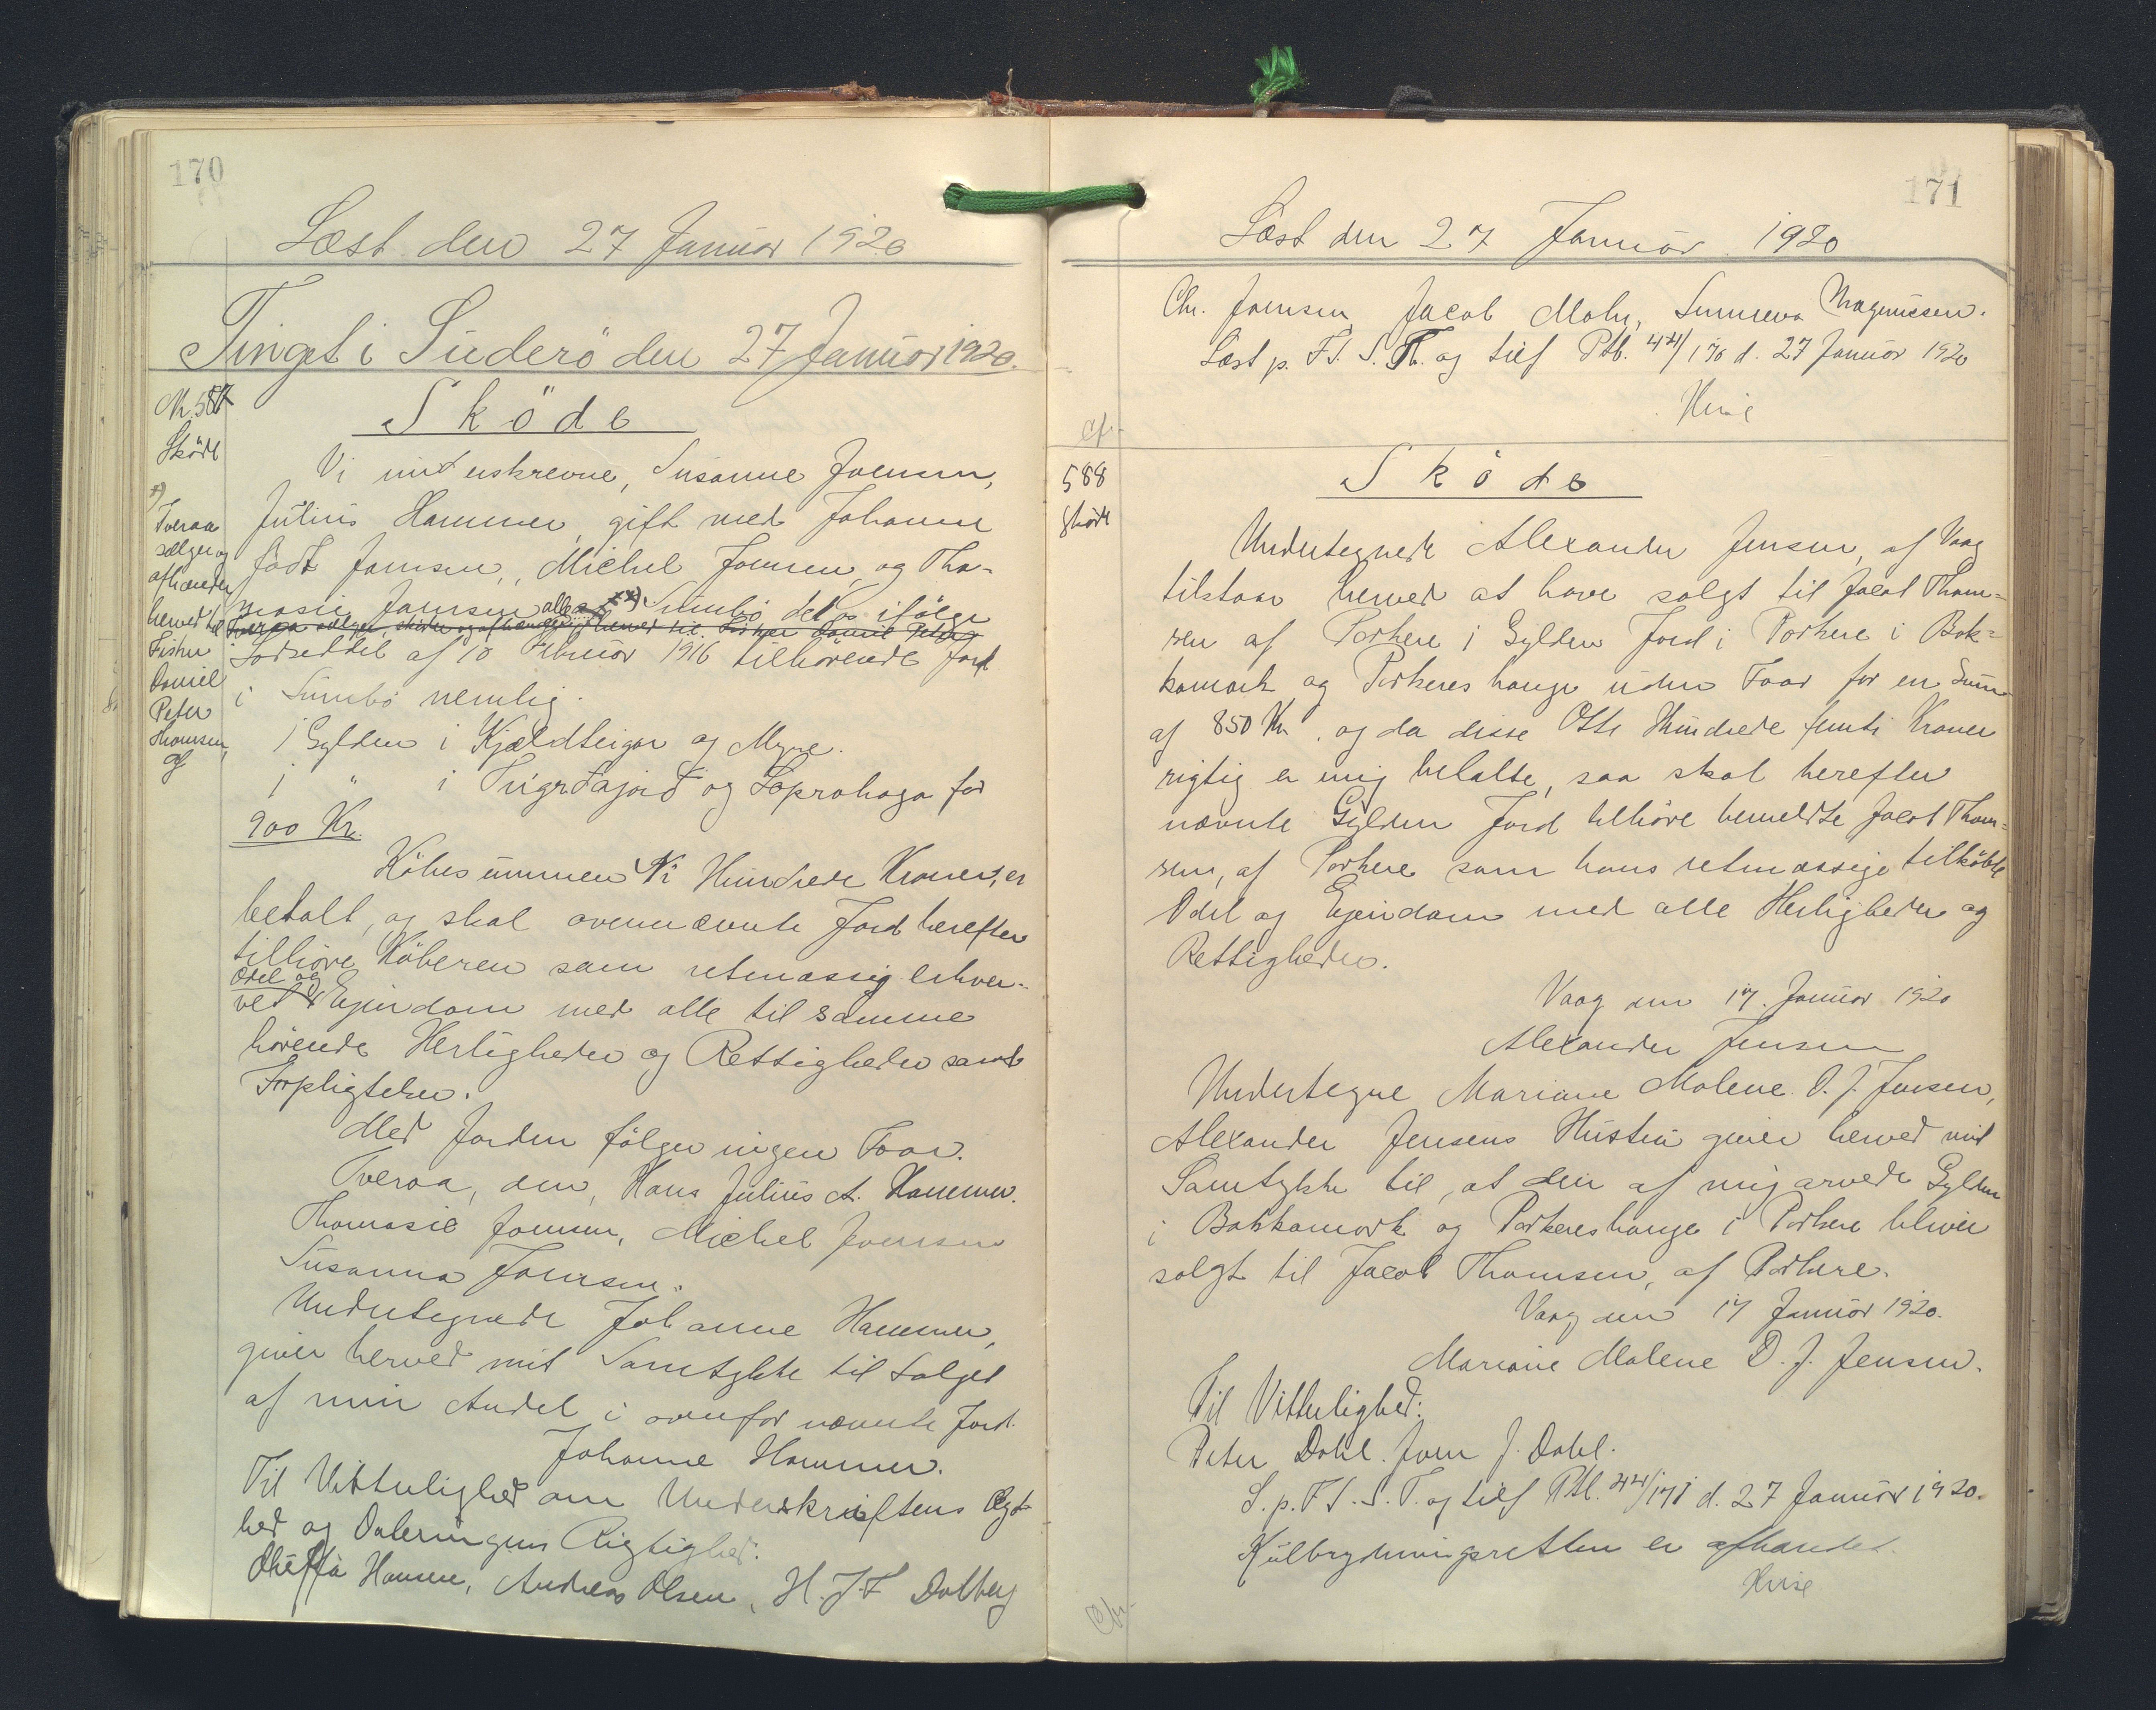 170
Læst den 27 Januar 1920
Tinget i Suderö den 27 Januar 1920.
Nr. 587
Sköde
x)
Tveraa
sælger og
afhænder
herved til
Fisker
Daniel
Peter
Thomsen,
af
Sköde
Vi underskrevne, Susanne Joensen,
Julius Hammer, gift med Johanne
födt Joensen, Michel Joensen og Tho-
masie Joensen alle af x) Sumbö det os ifölge
Tveraa sælger, skøder og afhænder herved til Fisker Daniel Peter
Lodseddel af 10 Februar 1916 tilhörende Jord
i Sumbö nemlig.
1 Gylden i Kjældteigar og Myre.
1 " i Trigrdajord og Soprahaga for
900 Kr.
Köbesummen Ni Hundrede Kroner, er
betalt, og skal ovennævnte Jord herefter
tilhöre Köberen som retmæssig erhver-
Odel og
vet Ejendom med alle til samme
hörende Herligheder og Rettigheder samt
Forpligtelser.
Med Jorden fölger ingen Faar.
Tveraa, den, Hans Julius A. Hammer.
Thomasie Joensen, Michel Joensen
Susanna Joensen.
Undertegnede Johanne Hammer,
giver herved mit Samtykke til Salget
af min Andel i ovenfor nævnte Jord.
Johanne Hammer.
Til Vitterlighed om Underskriftens Ægt-
hed og Dateringens Rigtighed:
Hansen, Andreas Olsen, H. J. F Dalberg
171
Læst den 27 Januar 1920
Chr. Joensen, Jacob Mohr, Sunneva Magnussen.
Læst p. F. S. Th. og tilf Ptb. 44/170 d. 27 Januar 1920
Cfr.
588
Sköde
Sköde
Undertegnede Alexander Jensen, af Vaag
tilstaar herved at have solgt til Jacob Thom-
sen af Porkere 1 Gylden Jord i Porkere i Bak-
kamork og Porkeres hauge uden Faar for en Sum
af 850 Kr. og da disse Otte Hundrede femti Kroner
rigtig er mig betalte, saa skal herefter
nævnte Gylden Jord tilhöre bemeldte Jacob Thom-
sen, af Porkere som hans retmæssige tilköbte
Odel og Ejendom med alle Herligheder og
Rettigheder.
Vaag den 17. Januar 1920
Alexander Jensen
Undertegne Mariane Malene D. J. Jensen,
Alexander Jensens Hustru giver herved mit
Samtykke til, at den af mig arvede Gylden
i Bakkamork og Porkereshauge i Porkere bliver
solgt til Jacob Thomsen, af Porkere.
Vaag den 17 Januar 1920.
Mariane Malene D. J. Jensen.
Til Vitterlighed:
Peter Dahl. Joen J. Dahl.
L. p. F. S. T. og tilf Ptb. 44/171 d. 27 Januar 1920.
Kulbrydningsretten er afhændet.
Cfr.